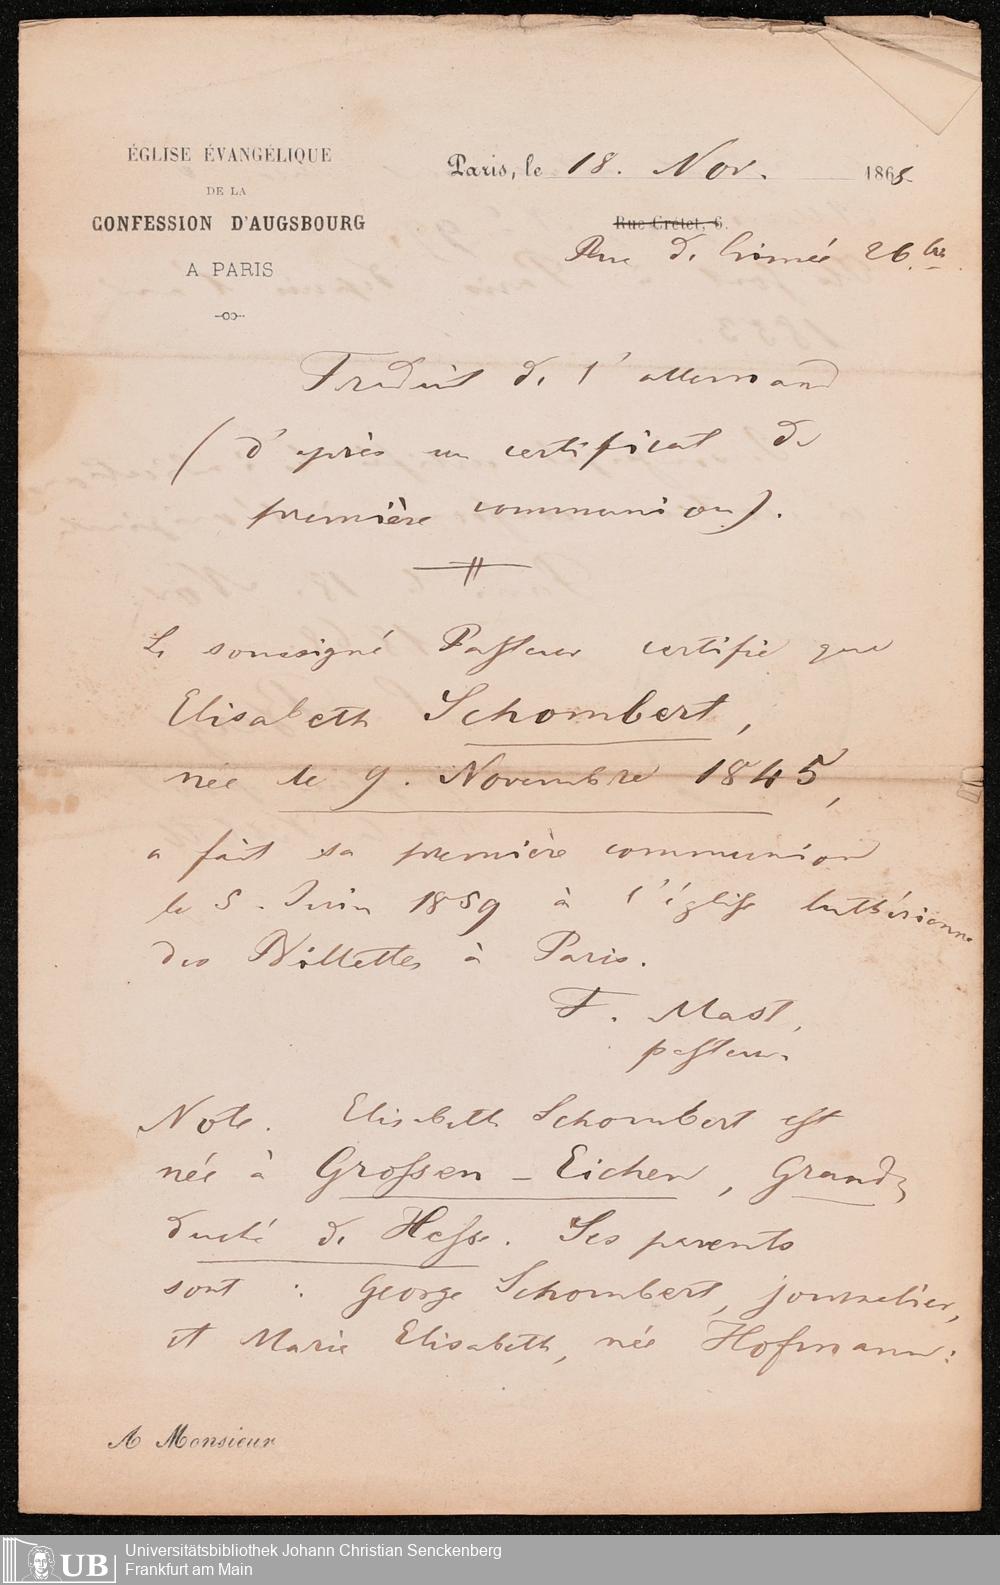 ÉGLISE ÉVANGÉLIQUE
DE LA
CONFESSION D'AUGSBOURG
A PARIS
Paris, le 18. Nov. 1868
Rue Crétet, 6.
Rue de Crimée 26 bis
Traduit de l'allemand
(d'après un certificat de
première communion).
Le soussigné Pasteur certifie que
Elisabeth Schombert,
née le 9. Novembre 1845,
a fait sa première communion
le 5. Juin 1859 à l'église luthérienne
des Billettes à Paris.
F. Mast,
pasteur.
Note. Elisabeth Schombert est
née à Grossen-Eichen, Grand
duché de Hesse. Ses parents
sont : George Schombert, journalier,
et Marie Elisabeth, née Hofmann:
A Monsieur
UB
Universitätsbibliothek Johann Christian Senckenberg
Frankfurt am Main